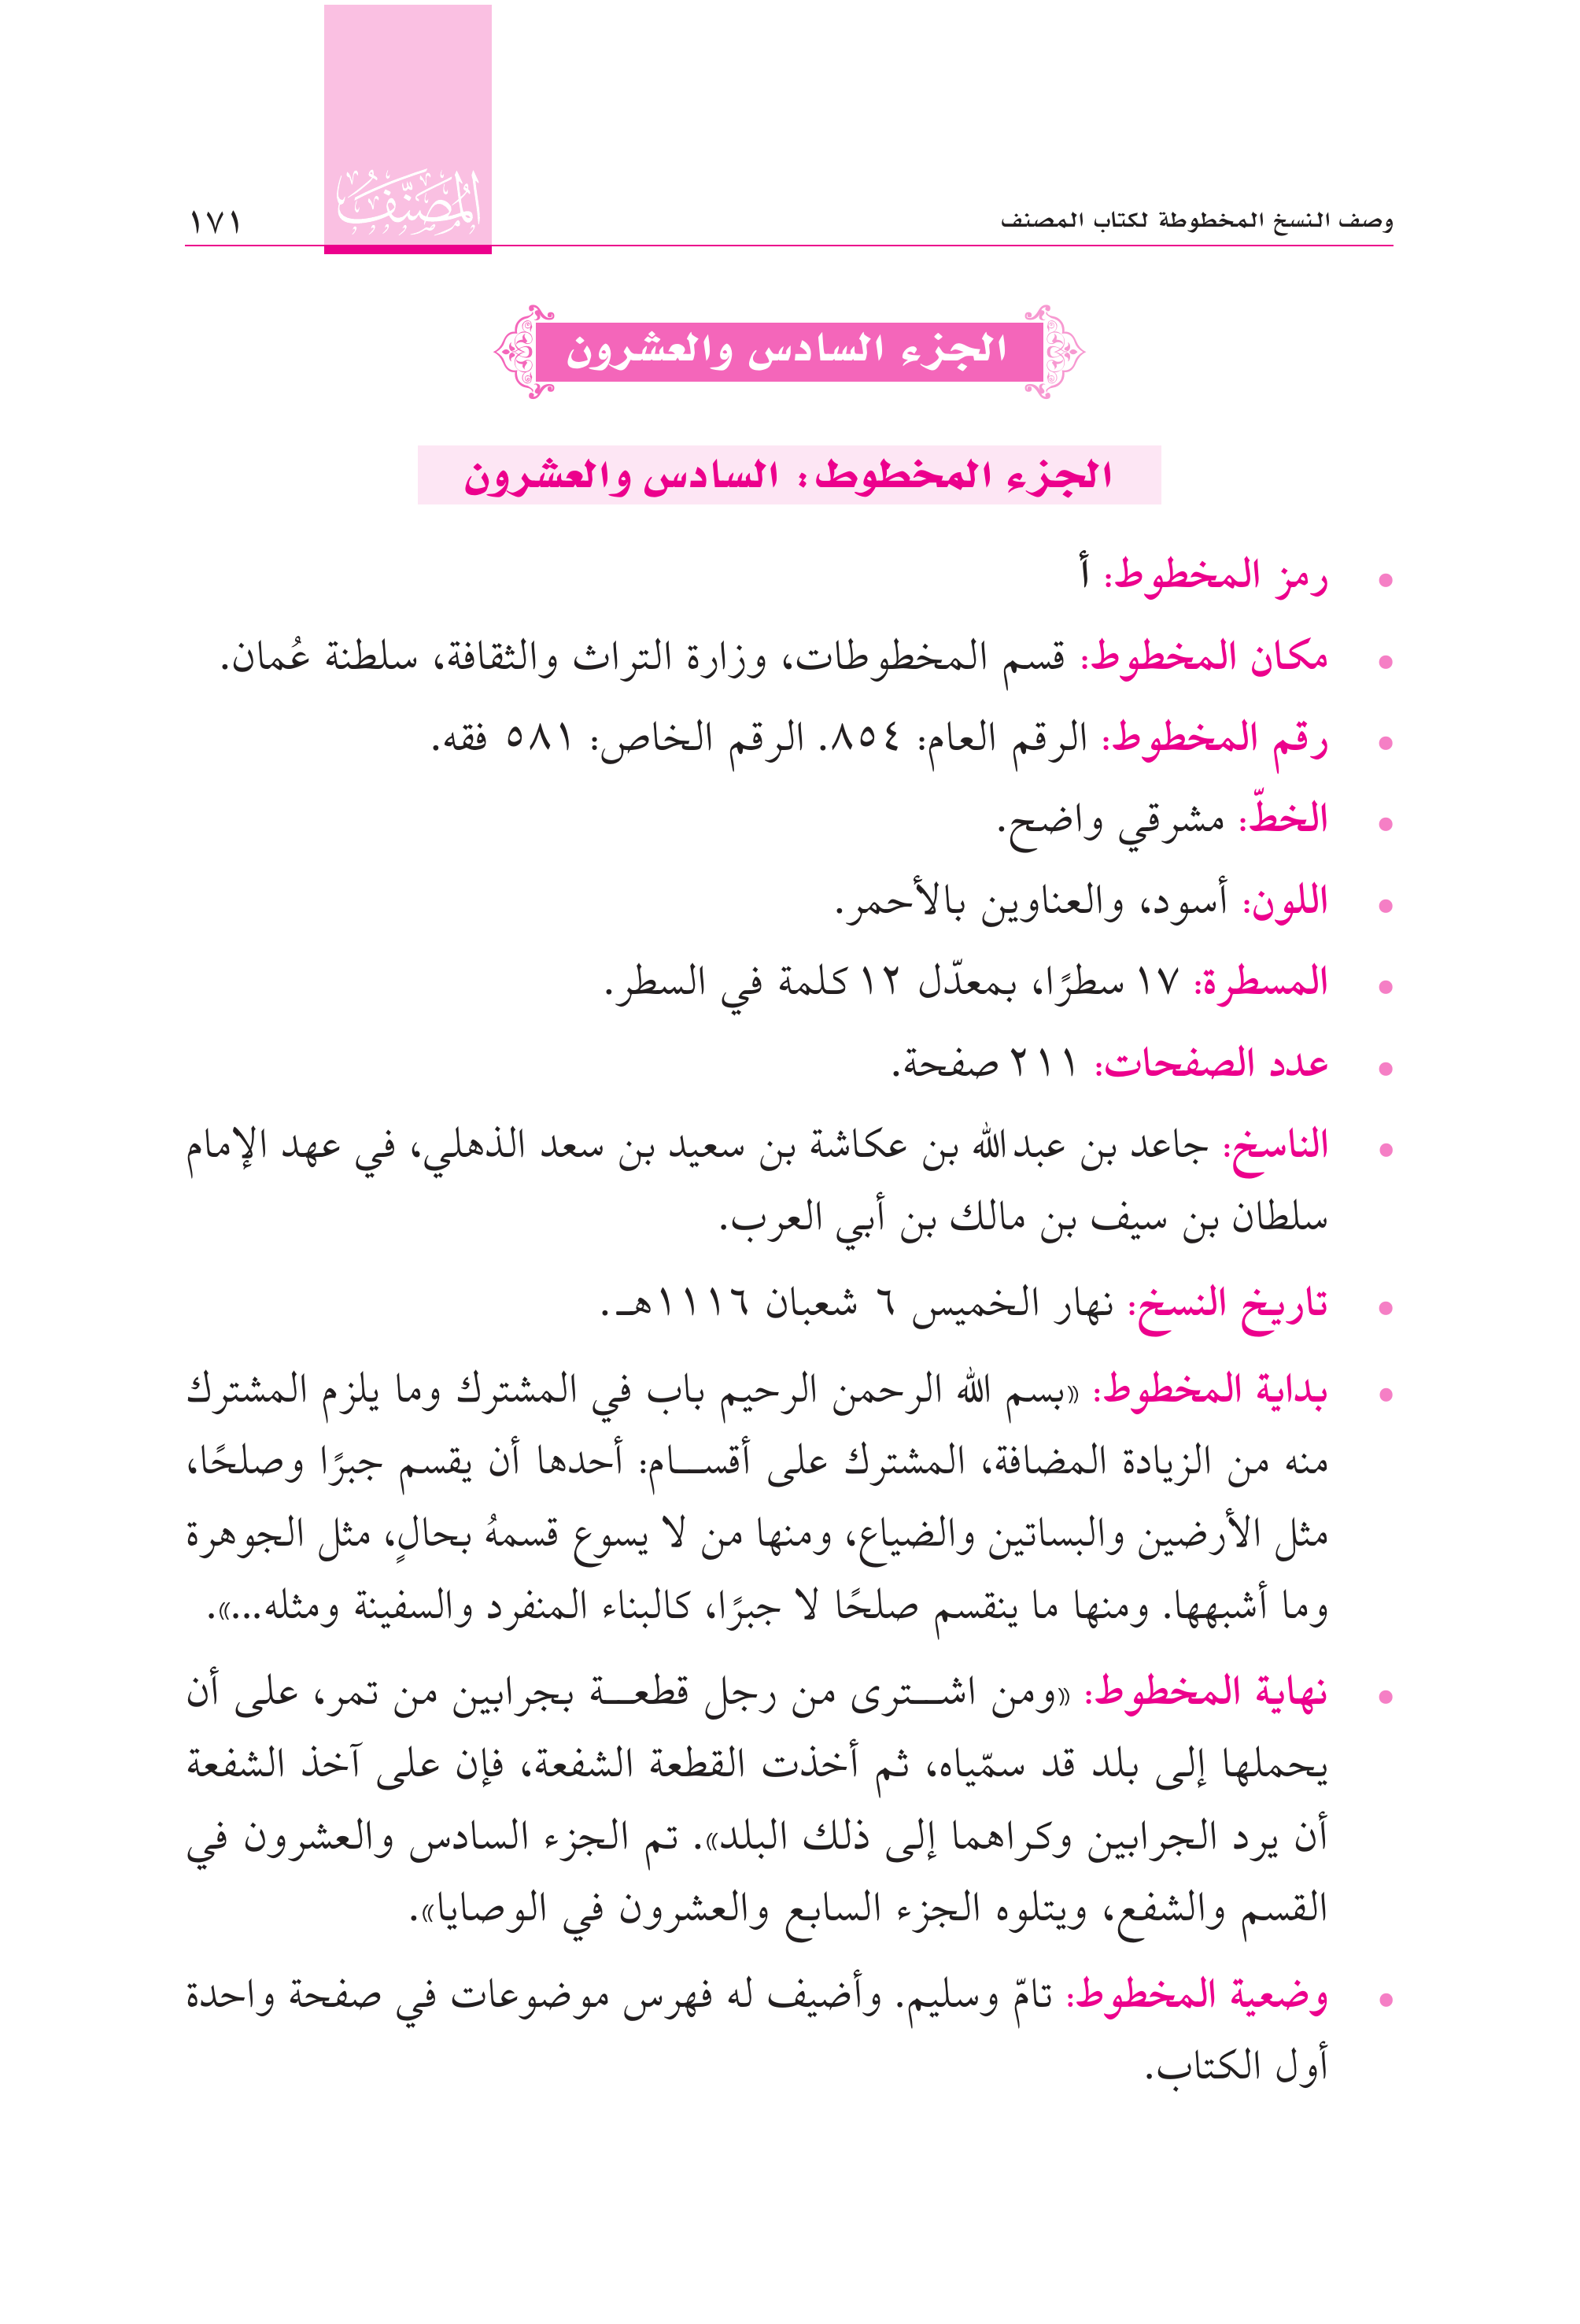 وصف النسخ المخطوطة لكتاب المصنف
المُصَنَّف
١٧١
الجزء السادس والعشرون
الجزء المخطوط: السادس والعشرون
• رمز المخطوط: أ
• مكان المخطوط: قسم المخطوطات، وزارة التراث والثقافة، سلطنة عُمان.
• رقم المخطوط: الرقم العام: ٨٥٤. الرقم الخاص: ٥٨١ فقه.
• الخطّ: مشرقي واضح.
• اللون: أسود، والعناوين بالأحمر.
• المسطرة: ١٧ سطرًا، بمعدّل ١٢ كلمة في السطر.
• عدد الصفحات: ٢١١ صفحة.
• الناسخ: جاعد بن عبدالله بن عكاشة بن سعيد بن سعد الذهلي، في عهد الإمام
سلطان بن سيف بن مالك بن أبي العرب.
• تاريخ النسخ: نهار الخميس ٦ شعبان ١١١٦هـ.
• بداية المخطوط: «بسم الله الرحمن الرحيم باب في المشترك وما يلزم المشترك
منه من الزيادة المضافة، المشترك على أقســام: أحدها أن يقسم جبرًا وصلحًا،
مثل الأرضين والبساتين والضياع، ومنها من لا يسوع قسمهُ بحالٍ، مثل الجوهرة
وما أشبهها. ومنها ما ينقسم صلحًا لا جبرًا، كالبناء المنفرد والسفينة ومثله...».
• نهاية المخطوط: «ومن اشــترى من رجل قطعــة بجرابين من تمر، على أن
يحملها إلى بلد قد سمّياه، ثم أخذت القطعة الشفعة، فإن على آخذ الشفعة
أن يرد الجرابين وكراهما إلى ذلك البلد». تم الجزء السادس والعشرون في
القسم والشفع، ويتلوه الجزء السابع والعشرون في الوصايا».
• وضعية المخطوط: تامّ وسليم. وأضيف له فهرس موضوعات في صفحة واحدة
أول الكتاب.